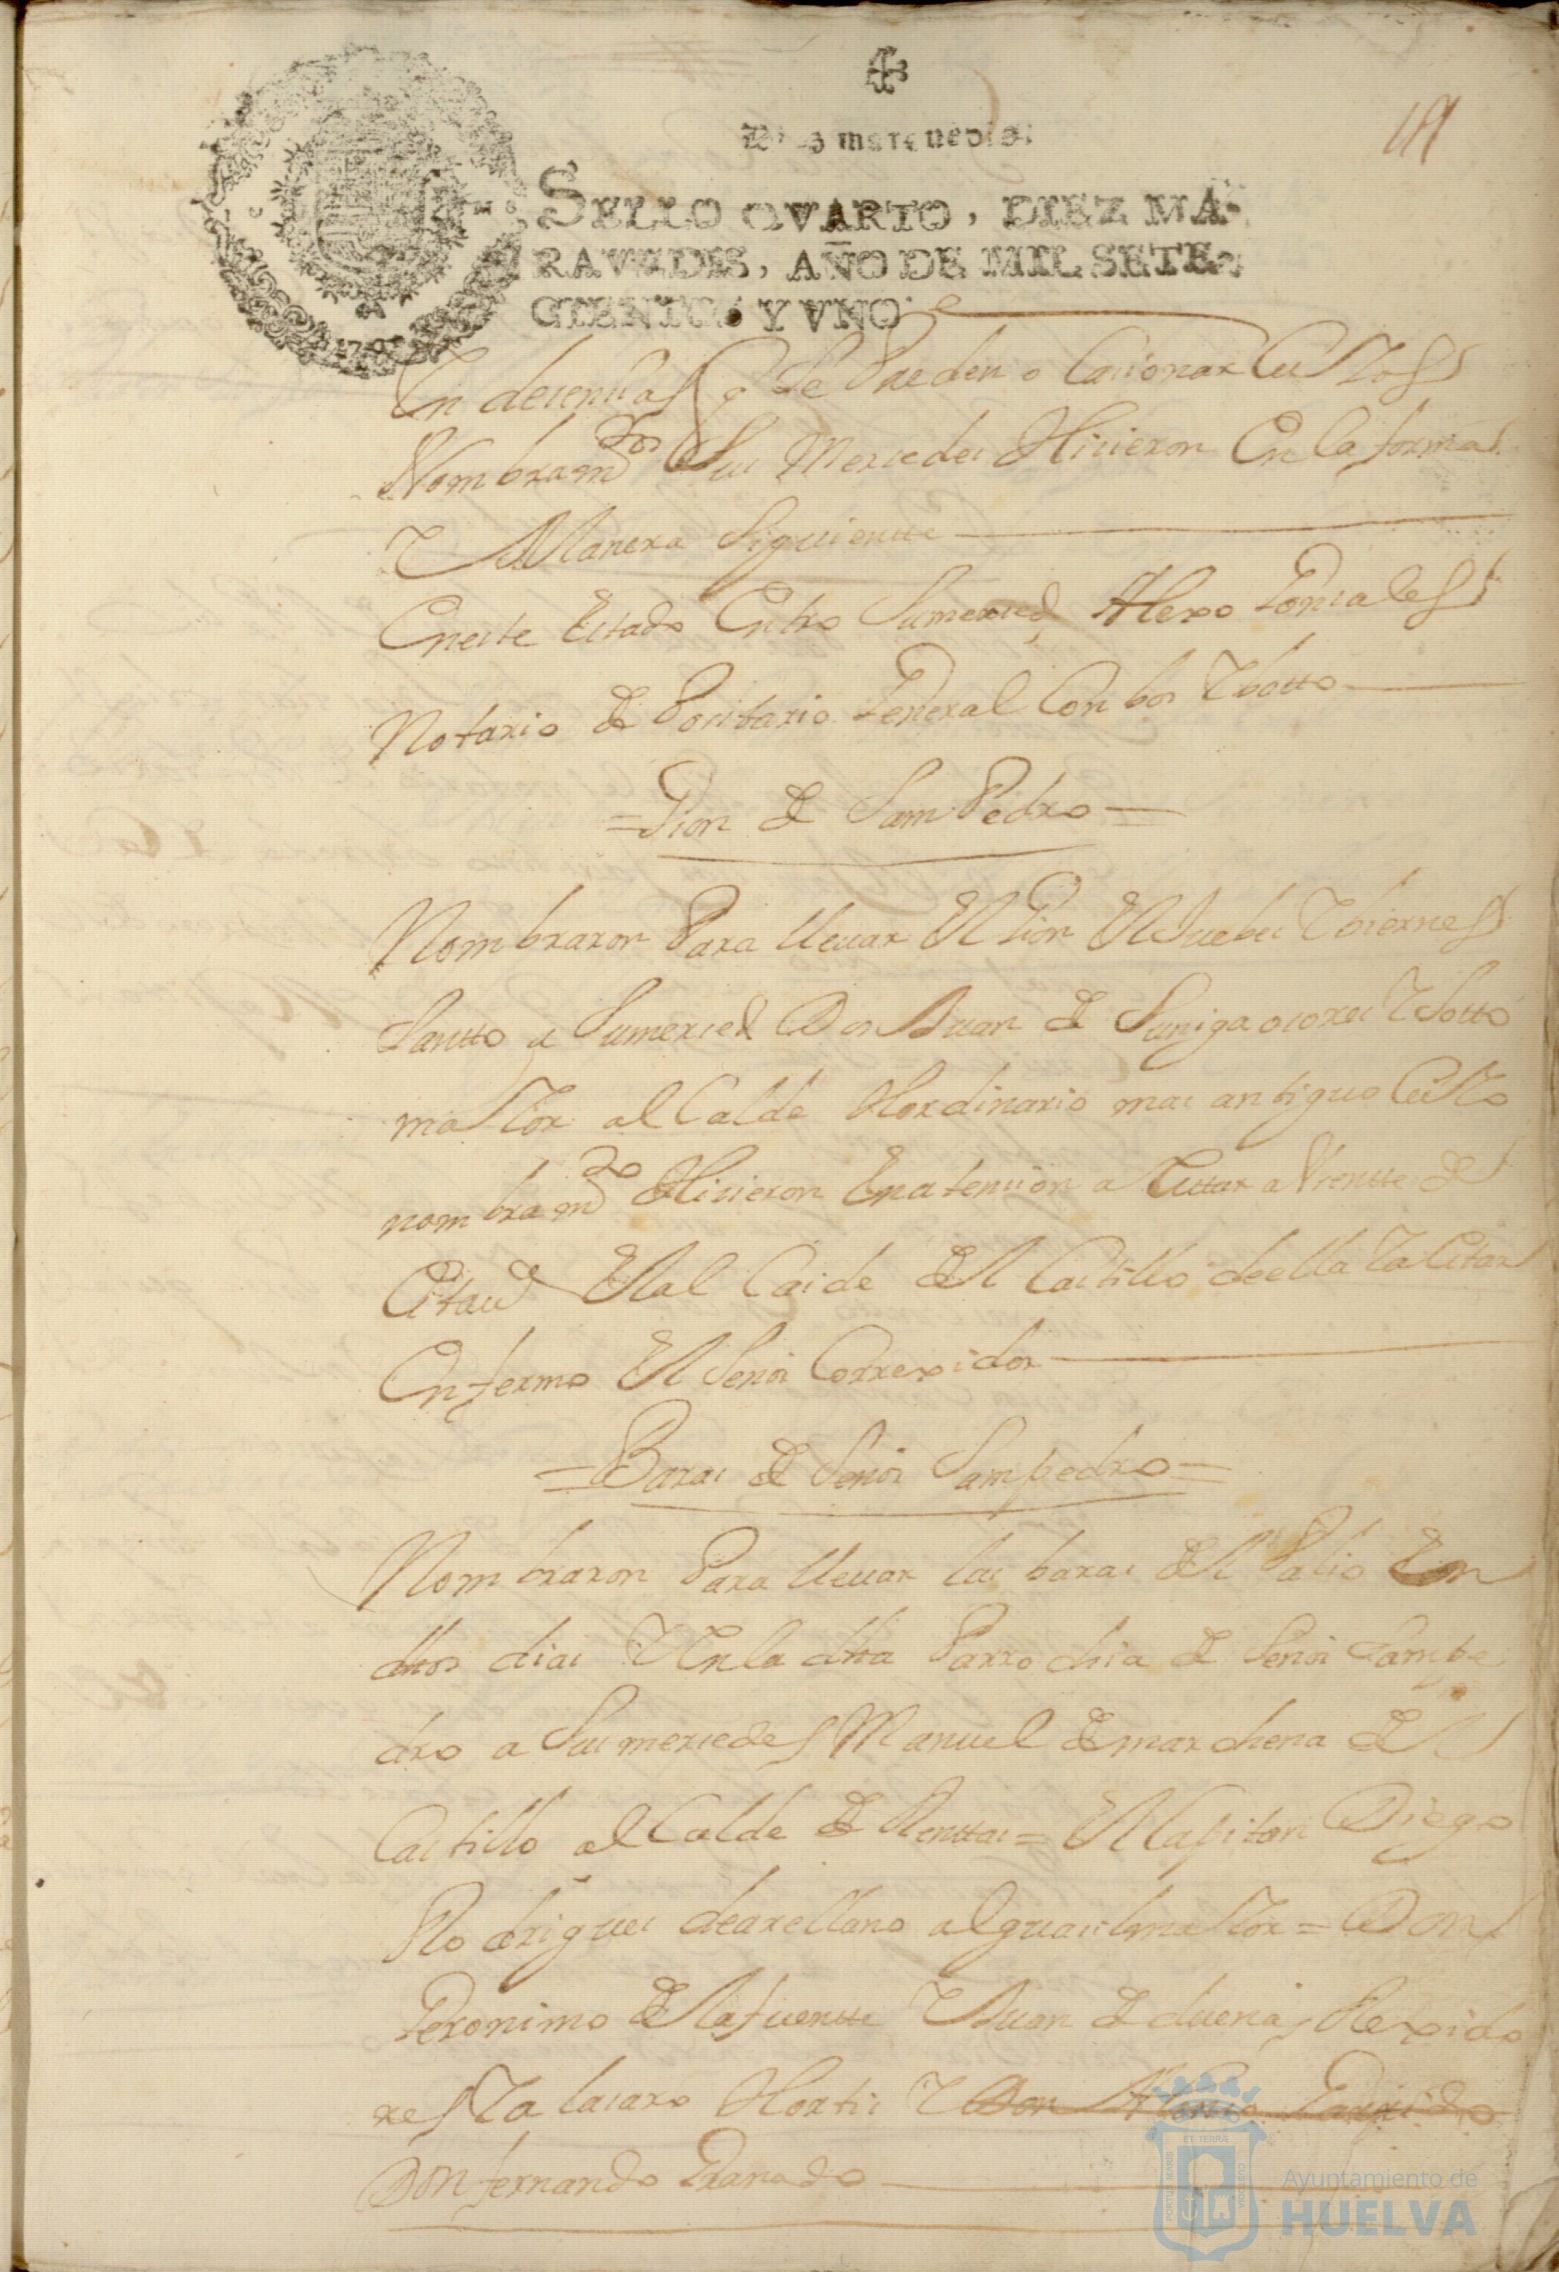 Diez maravedis.
49
SELLO QVARTO, DIEZ MA-
RAVEDIS, AÑO DE MIL SETE-
CIENTOS Y VNO.
1701
Yndecencias q Se Pueden o Cacionar Estos
Nombramtos Sus Mercedes Hicieron En la forma
Y Manera Siguientte
En este Estado Entro Sumerced Alexo Gonsales
Notario de Pocitario General Con bos Y botto
= Pion de Sam Pedro =
Nombraron Para lleuar El Pion El Juebes Y biernes
Santto a Sumerced Don Juan de Suniga ocores Y Sotto
maYor al Calde Hordinario mas antiguo Esto
nombramto Hicieron En atencion a Estar a Vsentte de
Esta uª El al Caide del Castillo de ella Ya Estar
Enfermo El Señor Correxidor
= Baras de Señor Sampedro =
Nombraron Para lleuar las baras del Palio En
dhos dias Y En la dha Parrochia de Señor Sampe
dro a Sus mercedes Manuel de marchena del
Castillo al Calde de Renttas = El Capitan Diego
Rodrigues de arellano alguacil maYor = Don
Geronimo de la fuentte Y Juan de dueñas Rexido
res Ya lasaro Hortis Y Don Alonso Garrido
Don fernando Granado
PORTUS MARIS
ET TERRÆ
CUSTODIA
Ayuntamiento de
HUELVA